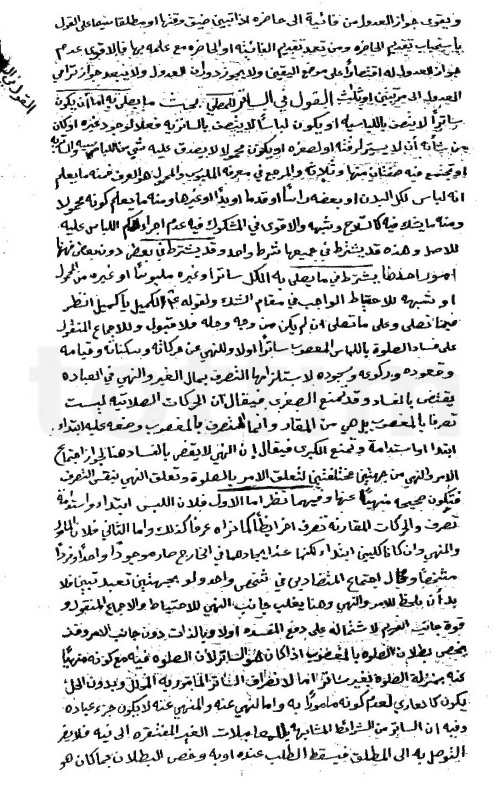 ويقوى جواز العدول من فائتة الى حاضرة لذا تبين ضيق وقتها او مطلقا بناء على القول
باستحباب تقديم الحاضره ومن تعمد تقديم الفائتة او الحاضره مع علمه بها فالاقوى عدم
جواز العدول له اقتصارا على موضع اليقين ولا يجوز دوران العدول ولا يبعد جواز ترامي
العدول الى مرتين او ثلث القول في الساتر للمصلي بحيث ما يصلي به اما أن يكون
ساترا لا يختص باللباسية او يكون لباسا لا يختص بالساترية فعلا لوجود غيره او كان
من شأنه أن لا يستر لرقته او لصغره او يكون محمولا لا يصدق عليه شيء من اللباسية والساترية
او تجتمع فيه صفتان منها وثلاثة والمرجع في معرفة الملبوس والمحمول العرف فمنه ما يعلم
انه لباس لكل البدن او بعضه رأسا او قدما او يدا او غيرها ومنه ما يعلم كونه محمولا
ومنه ما يشك فيه كالسلاح وشبهه والاقوى في المشكوك فيه عدم اجراء حكم اللباس عليه
للاصل وهذه قد يشترط في جميعها شرط واحد وقد يشترط في بعض دون بعض فهنا
امور احدها يشترط في ما يصلي به الكل ساترا وغيره ملبوسا او غيره من المحمول
او شبهه للاحتياط الواجب في مقام الشك ولقوله ع يا كميل انظر
فيما تصلي وعلى ما تصلي ان لم يكن من وجهه وحله فلا قبول وللاجماع المنقول
على فساد الصلوة باللباس المغصوب ساترا اولا وللنهي عن حركاته وسكناته وقيامه
وقعوده وركوعه وسجوده لاستلزامها التصرف بمال الغير والنهي في العباده
يقتضي بالفساد وقد تمنع الصغرى فيقال أن الحركات الصلاتية ليست
تصرفا بالمغصوب بل هي من المقارنات وانما التصرف بالمغصوب وضعه عليه ابتداء
ابتداء او استدامة وتمنع الكبرى فيقال إن النهي لا يقضي بالفساد هنا لجواز اجتماع
الامر والنهي من جهتين مختلفتين لتعلق الامر بالصلوة وتعلق النهي بنفس التصرف
فتكون صحيحه منهيا عنها وفيهما نظر اما الاول فلان اللبس ابتداء واستدامة
تصرف والحركات المقارنة تصرف اخر ايضا كما نراه عرفا كذلك واما الثاني فلان المأمور
والمنهي وان كانا كليين ابتداء لكنها عند ايجادهما في الخارج صار موجودا واحدا وفردا
مشخصا ومحال اجتماع المتضادين في شخص واحد ولو بجهتين تعدد تبينا فلا
بد أن يلحظ للامر والنهي وهنا يغلب جانب النهي للاحتياط والاجماع المنقول و
قوة جانب التحريم لاشتماله على دفع المفسده اولا وبالذات دون جانب الامر وقد
يخص بطلان الصلوة بالمغصوب اذا كان هو الساتر لأن الصلوة فيه مع كونه منهيا
عنه بمنزلة الصلوة بغير ساتر اما لانصراف الساتر المأمور به المحلل وبدون الحل
يكون كالعاري لعدم كونه مأمورا به واما لنهي عنه والمنهي عنه لا يكون جزء عباده
وفيه ان الساتر من الشرائط المشابهة بالمعاملات الغير المفتقره الى نية فلا يضر
التوصل به الى المطلق فيسقط الطلب عنده اوبه وخص البطلان بما كان هو